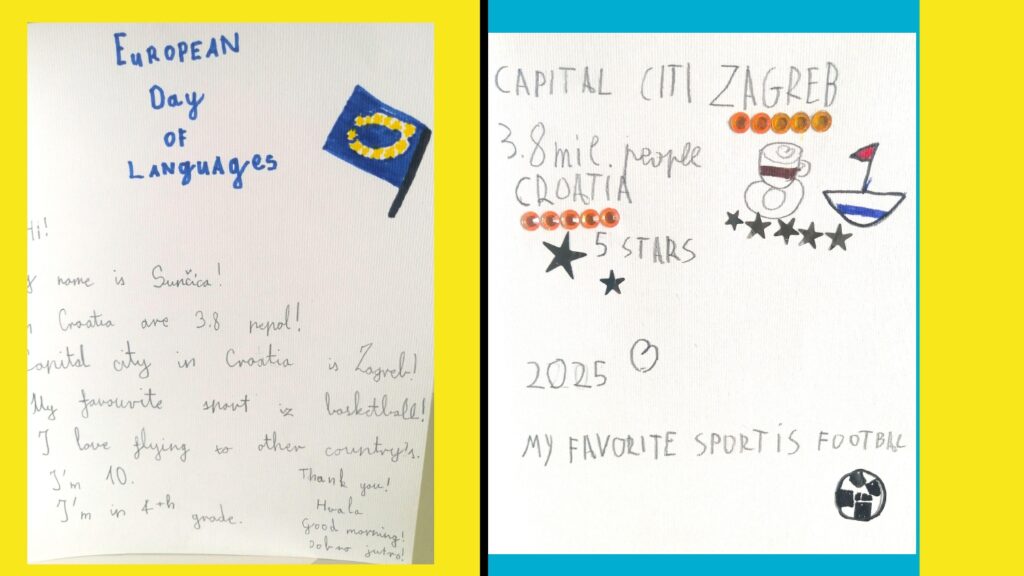 EUROPEAN
Day
OF
LANguAges
Hi!
y name is Sunčica!
n Croatia are 3.8 pepol!
Capital city in Croatia is Zagreb!
My favouvite sport iz basketball!
I love flying to other country's.
I'm 10.
I'm in 4th grade.
Thank you!
Hvala
Good morning!
Dobro jutro!
CAPITAL CITI ZAGREB
3.8 mil. people
CROATIA
5 STARS
2025
MY FAVORITE SPORT IS FOOTBAL